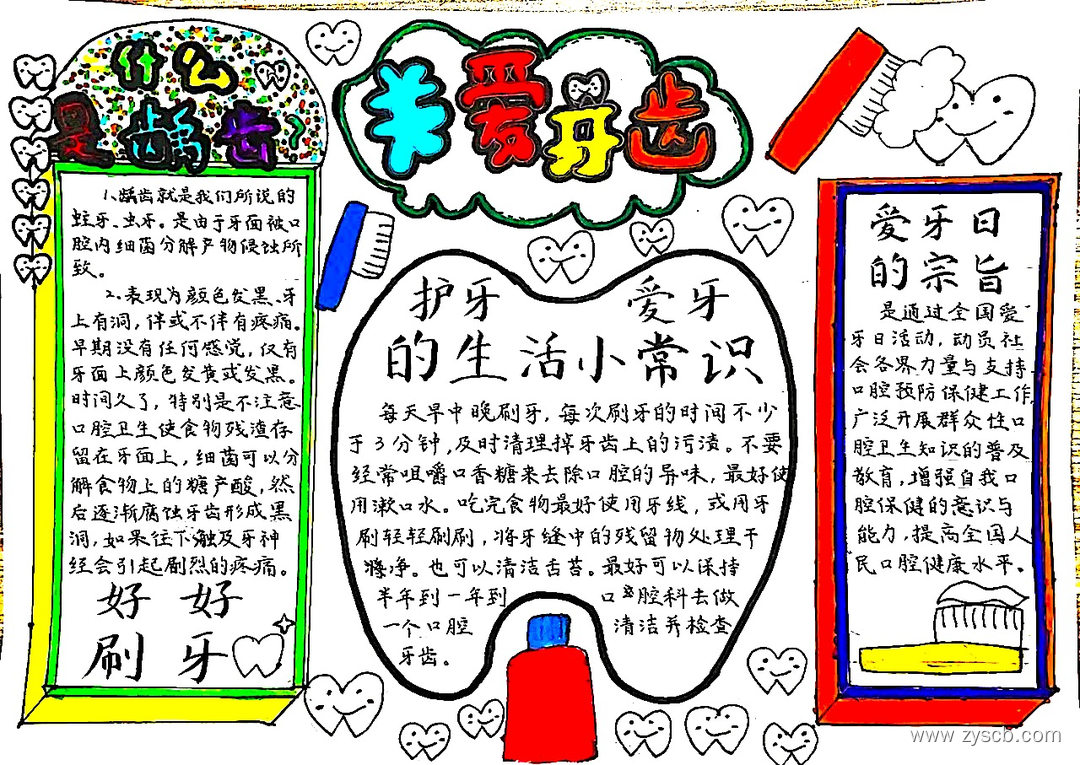 什么
是龋齿?
1、龋齿就是我们所说的
蛀牙、虫牙。是由于牙面被口
腔内细菌分解产物侵蚀所
致。
2、表现为颜色发黑、牙
上有洞,伴或不伴有疼痛。
早期没有任何感觉,仅有
牙面上颜色发黄或发黑。
时间久了,特别是不注意
口腔卫生使食物残渣存
留在牙面上,细菌可以分
解食物上的糖产酸,然
后逐渐腐蚀牙齿形成黑
洞,如果往下触及牙神
经会引起剧烈的疼痛。
好好
刷牙
关爱牙齿
护牙 爱牙
的生活小常识
每天早中晚刷牙,每次刷牙的时间不少
于3分钟,及时清理掉牙齿上的污渍。不要
经常咀嚼口香糖来去除口腔的异味,最好使
用漱口水。吃完食物最好使用牙线,或用牙
刷轻轻刷刷,将牙缝中的残留物处理干
净。也可以清洁舌苔。最好可以保持
半年到一年到 口腔科去做
一个口腔 清洁并检查
牙齿。
爱牙日
的宗旨
是通过全国爱
牙日活动,动员社
会各界力量与支持
口腔预防保健工作,
广泛开展群众性口
腔卫生知识的普及
教育,增强自我口
腔保健的意识与
能力,提高全国人
民口腔健康水平。
www.zyscb.com